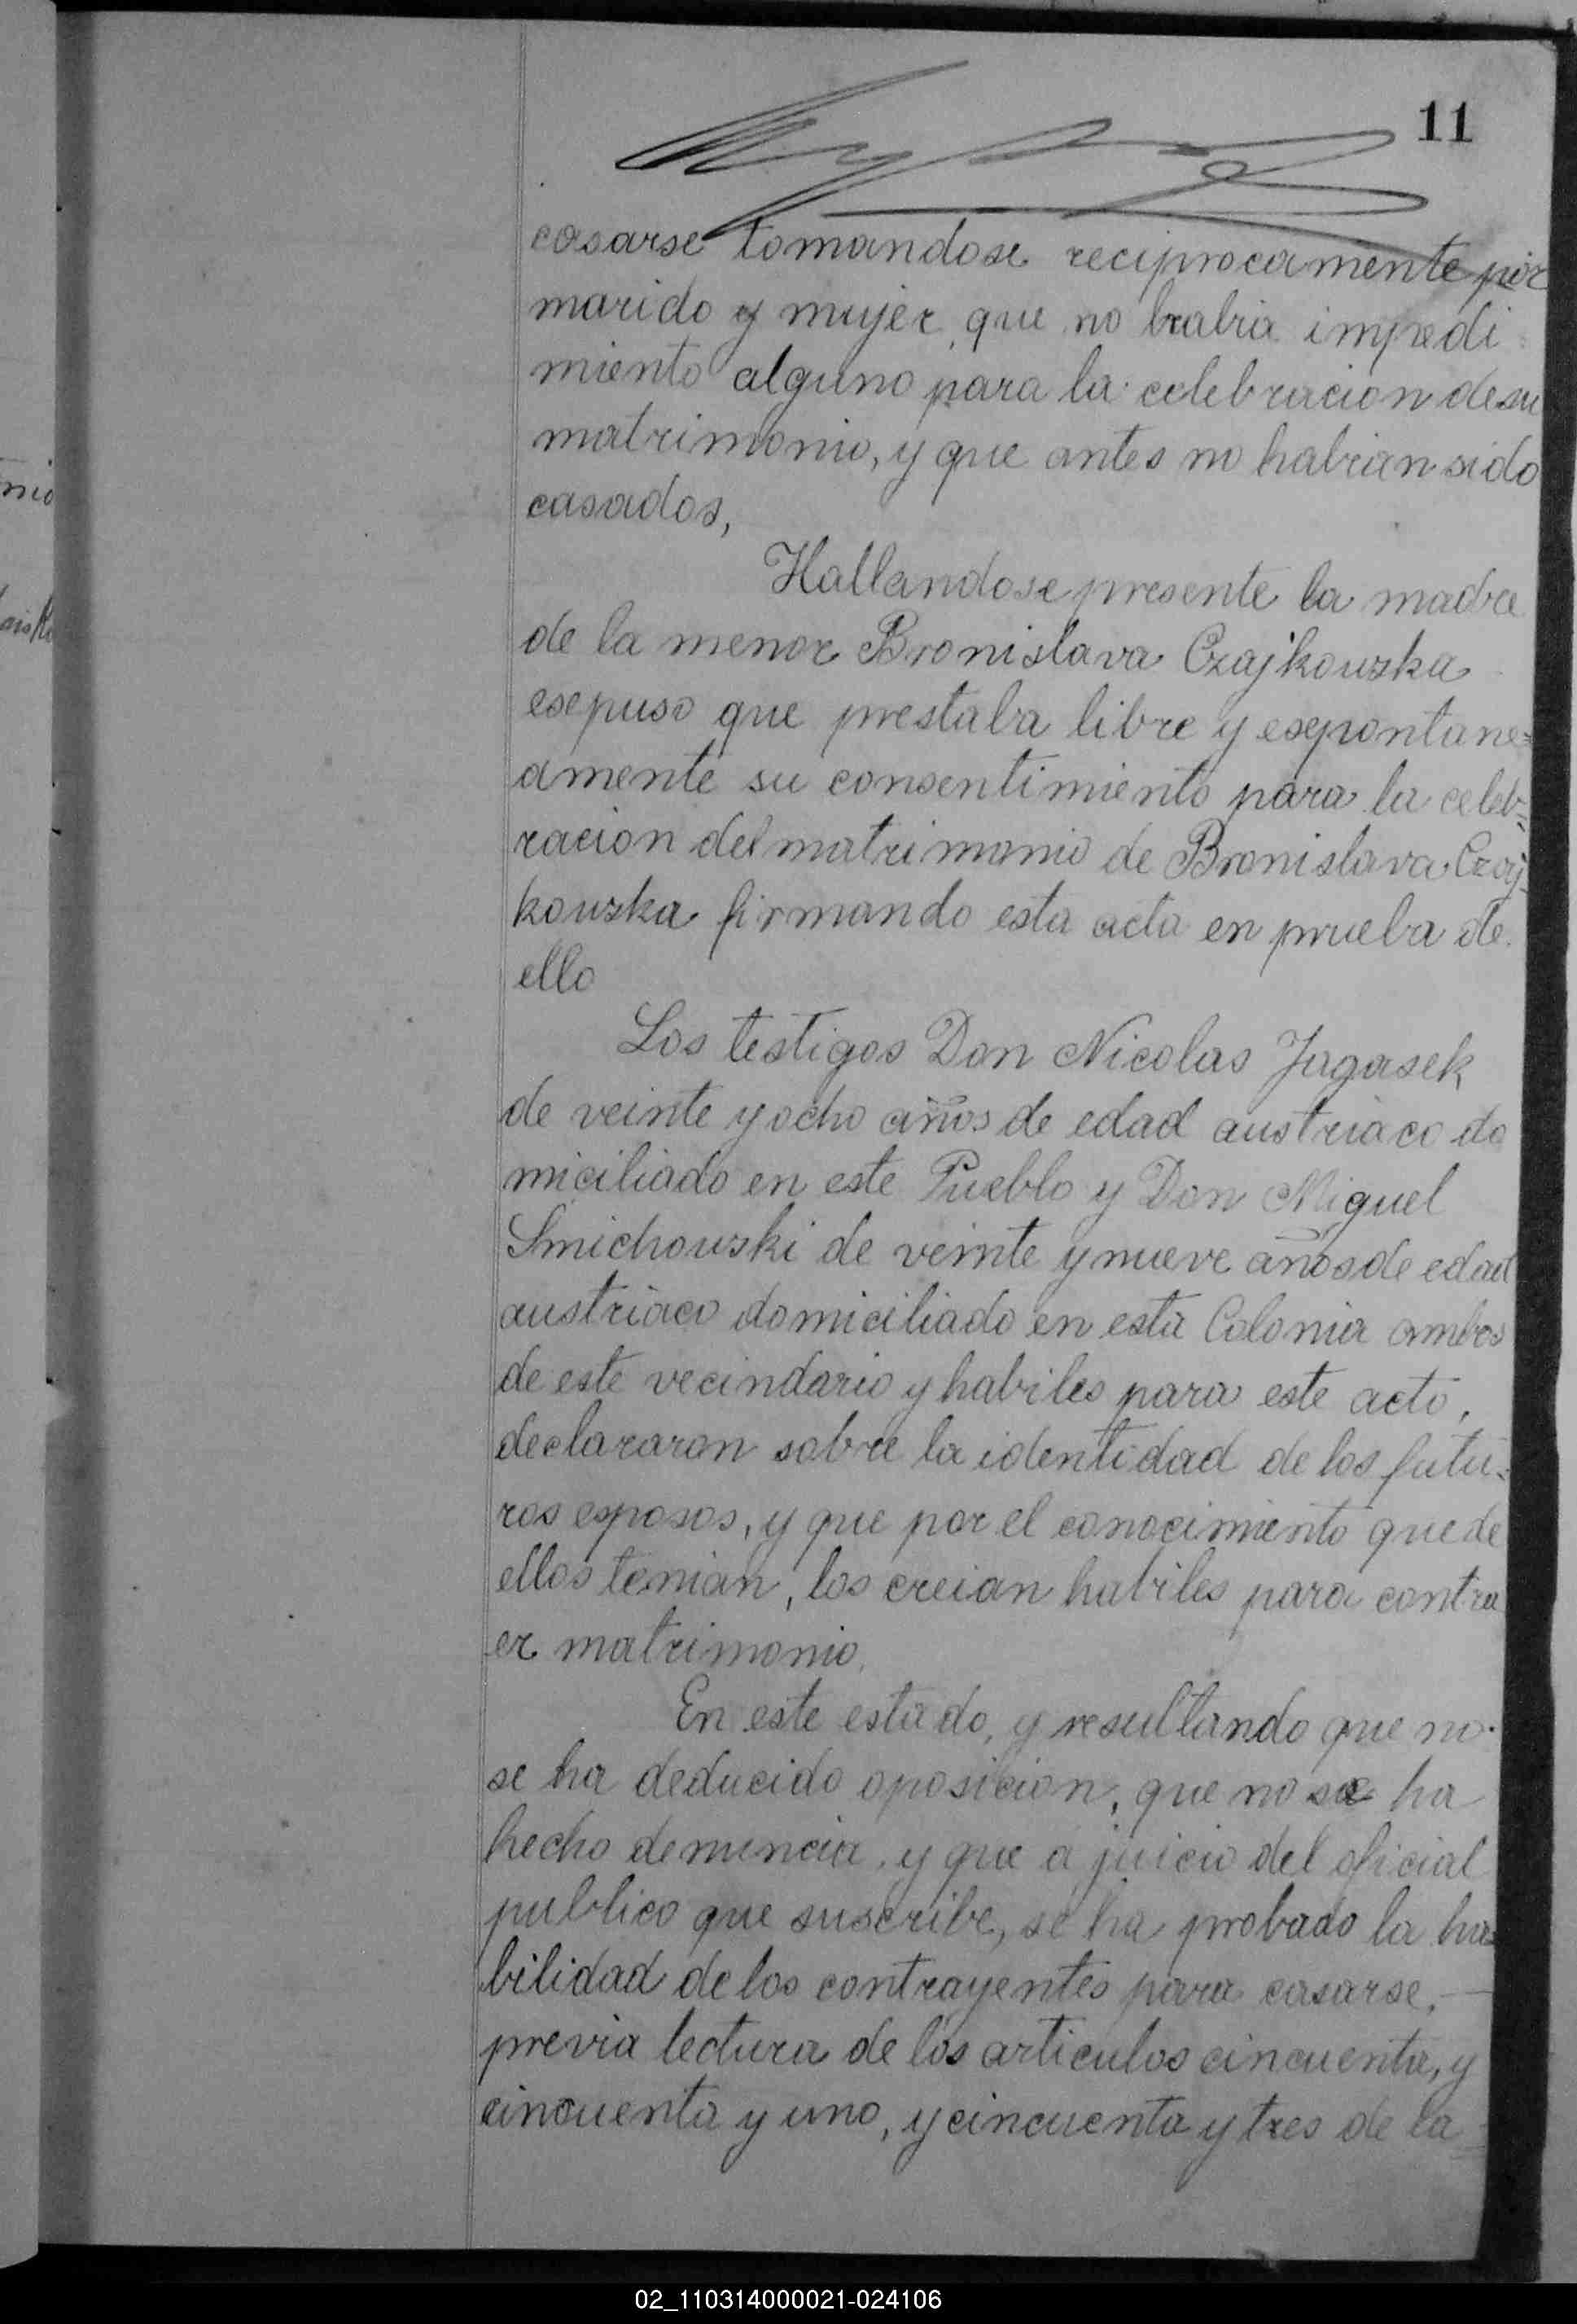 11
casarse tomandose reciprocamente por
marido y mujer, que no habia impedi
miento alguno para la celebracion de su
matrimonio, y que antes no habian sido
casados,
Hallandose presente la madre
de la menor Bronislava Czajkowska
esepuso que prestaba libre y esepontane=
amente su consentimiento para la celeb=
racion del matrimonio de Bronislava Czaj-
kowska firmando esta acta en prueba de
ello
Los testigos Don Nicolas Jagasek
de veinte y ocho años de edad austriaco do
miciliado en este Pueblo y Don Miguel
Smichowski de veinte y nueve años de edad
austriaco domiciliado en esta Colonia ambos
de este vecindario y habiles para este acto,
declararon sobre la identidad de los futu-
ros esposos, y que por el conocimiento que de
ellos tenian, los creian habiles para contra
er matrimonio.
En este estado, y resultando que no
se ha deducido oposicion, que no se ha
hecho denuncia, y que a juicio del oficial
publico que suscribe, se ha probado la ha
bilidad de los contrayentes para casarse,
previa lectura de los articulos cincuenta, y
cincuenta y uno, y cincuenta y tres de la
nio
02_110314000021-024106